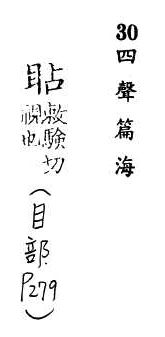 30四聲篇海
䀡敕驗切
視也
(目部P279)